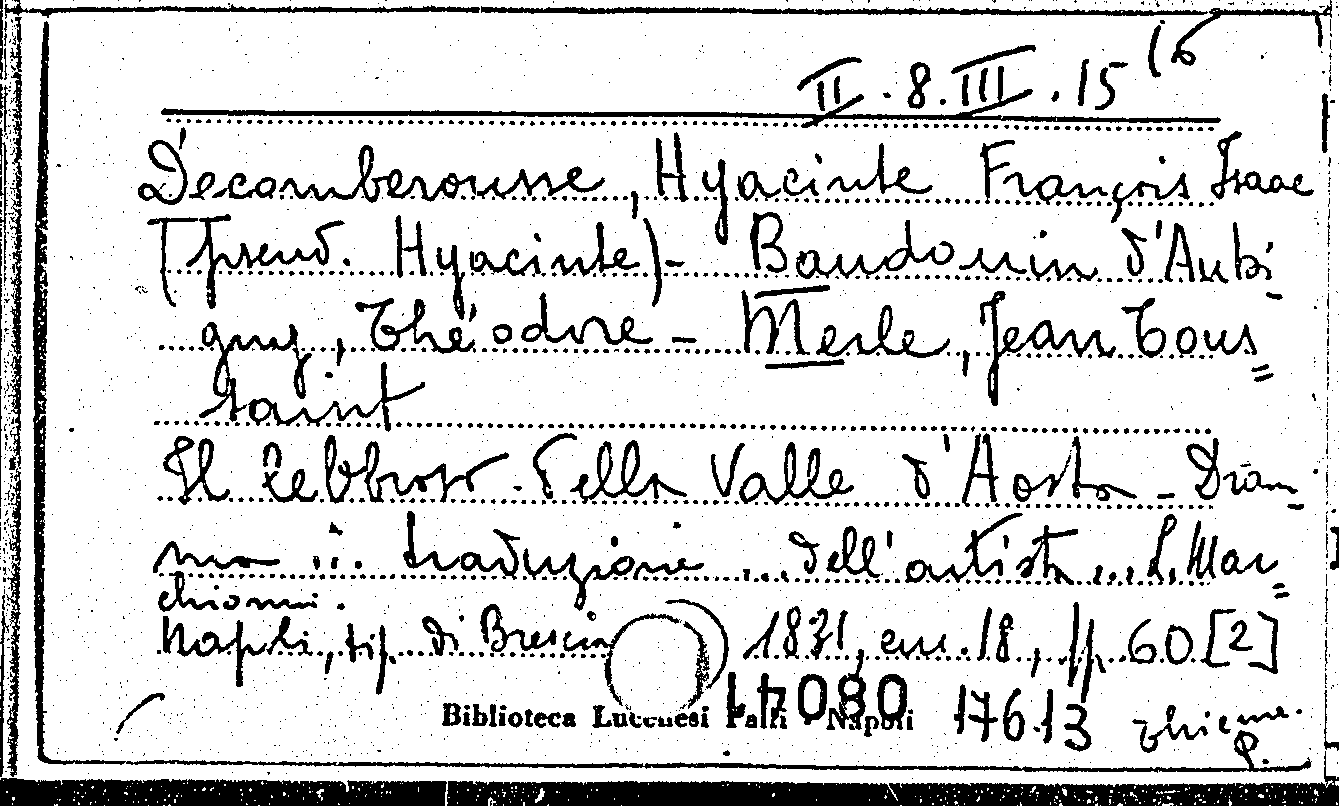 II . 8 . III . 15 (6
Décomberousse, Hyacinte François Isaac
(pseud. Hyacinte) - Baudouin d'Aubi-
gny, Théodore - Merle, Jean Tous=
saint
Il lebbroso della Valle d'Aosta - Dram-
ma ... traduzione ... dell'artista ... L. Mar=
chionni.
Napoli, tip. di Brescia 1831, cm. 18, pp. 60 [2]
Biblioteca Lucchesi Palli - Napoli 17613